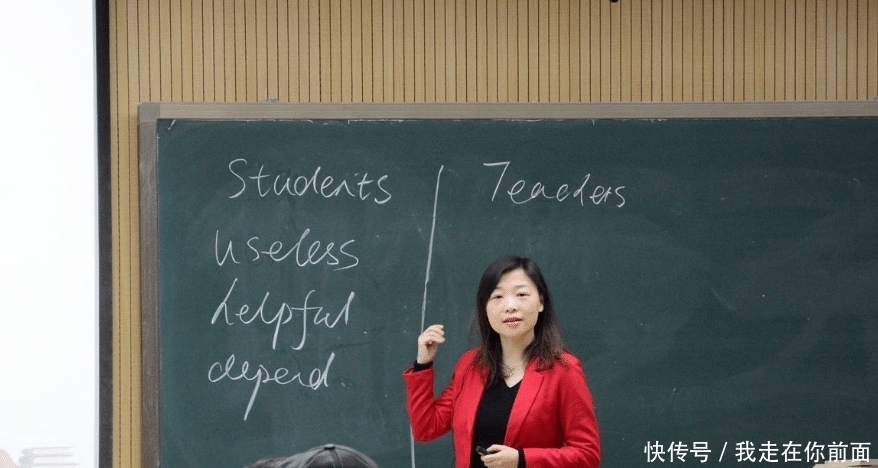 Students
Teachers
useless
helpful
depend.
快传号 / 我走在你前面